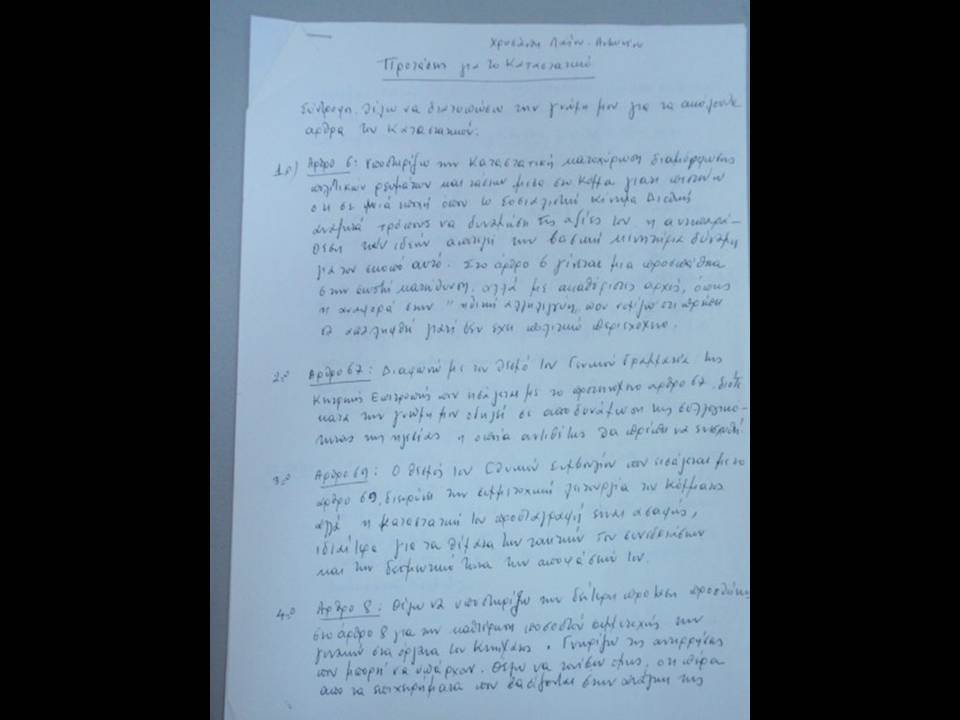 Χρυσάνθη Λαΐου - Αντωνίου
Προτάσεις για το Καταστατικό
Σύντροφοι, θέλω να διατυπώσω την γνώμη μου για τα ακόλουθα
άρθρα του Καταστατικού.
1ο) Άρθρο 6: Υποστηρίζω την Καταστατική κατοχύρωση διαμόρφωσης
πολιτικών ρευμάτων και τάσεων μέσα στο Κόμμα γιατί πιστεύω
ότι σε μιά εποχή όπου το Σοσιαλιστικό Κίνημα Διεθνώς
αναζητά τρόπους να δυναμώσει τις αξίες του, η αντιπαρά-
θεση των ιδεών αποτελεί την βασική κινητήρια δύναμη
για τον σκοπό αυτό. Στο άρθρο 6 γίνεται μια προσπάθεια
στην σωστή κατεύθυνση, αλλά με ακαθόριστες αρχές, όπως
η αναφορά στην "ηθική αλληλεγγύη, που νομίζω ότι πρέπει
να απαλειφθεί γιατί δεν έχει πολιτικό περιεχόμενο.
2ο Άρθρο 67: Διαφωνώ με τον θεσμό του Γενικού Γραμματέα της
Κεντρικής Επιτροπής που εισάγεται με το προτεινόμενο άρθρο 67, διότι
κατά την γνώμη μου οδηγεί σε αποδυνάμωση της συλλογικό-
τητας της ηγεσίας η οποία αντιθέτως θα πρέπει να ενισχυθεί
3ο Άρθρο 69: Ο θεσμός του Εθνικού Συμβουλίου που εισάγεται με το
άρθρο 69, διευρύνει την συμμετοχική λειτουργία του Κόμματος
αλλά η καταστατική του προδιαγραφή είναι ασαφής,
ιδιαίτερα για τα θέματα των τακτικών του συνεδριάσεων
και την δεσμευτικότητα των αποφάσεών του.
4ο Άρθρο 8: Θέλω να υποστηρίξω την δεύτερη πρόταση προσθήκης
στο άρθρο 8 για την καθιέρωση ποσοστού συμμετοχής των
γυναικών στα όργανα του Κινήματος. Γνωρίζω τις αντιρρήσεις
που μπορεί να υπάρχουν. Θέλω να τονίσω όμως, ότι πέρα
από τα επιχειρήματα που βασίζονται στην ανάγκη της